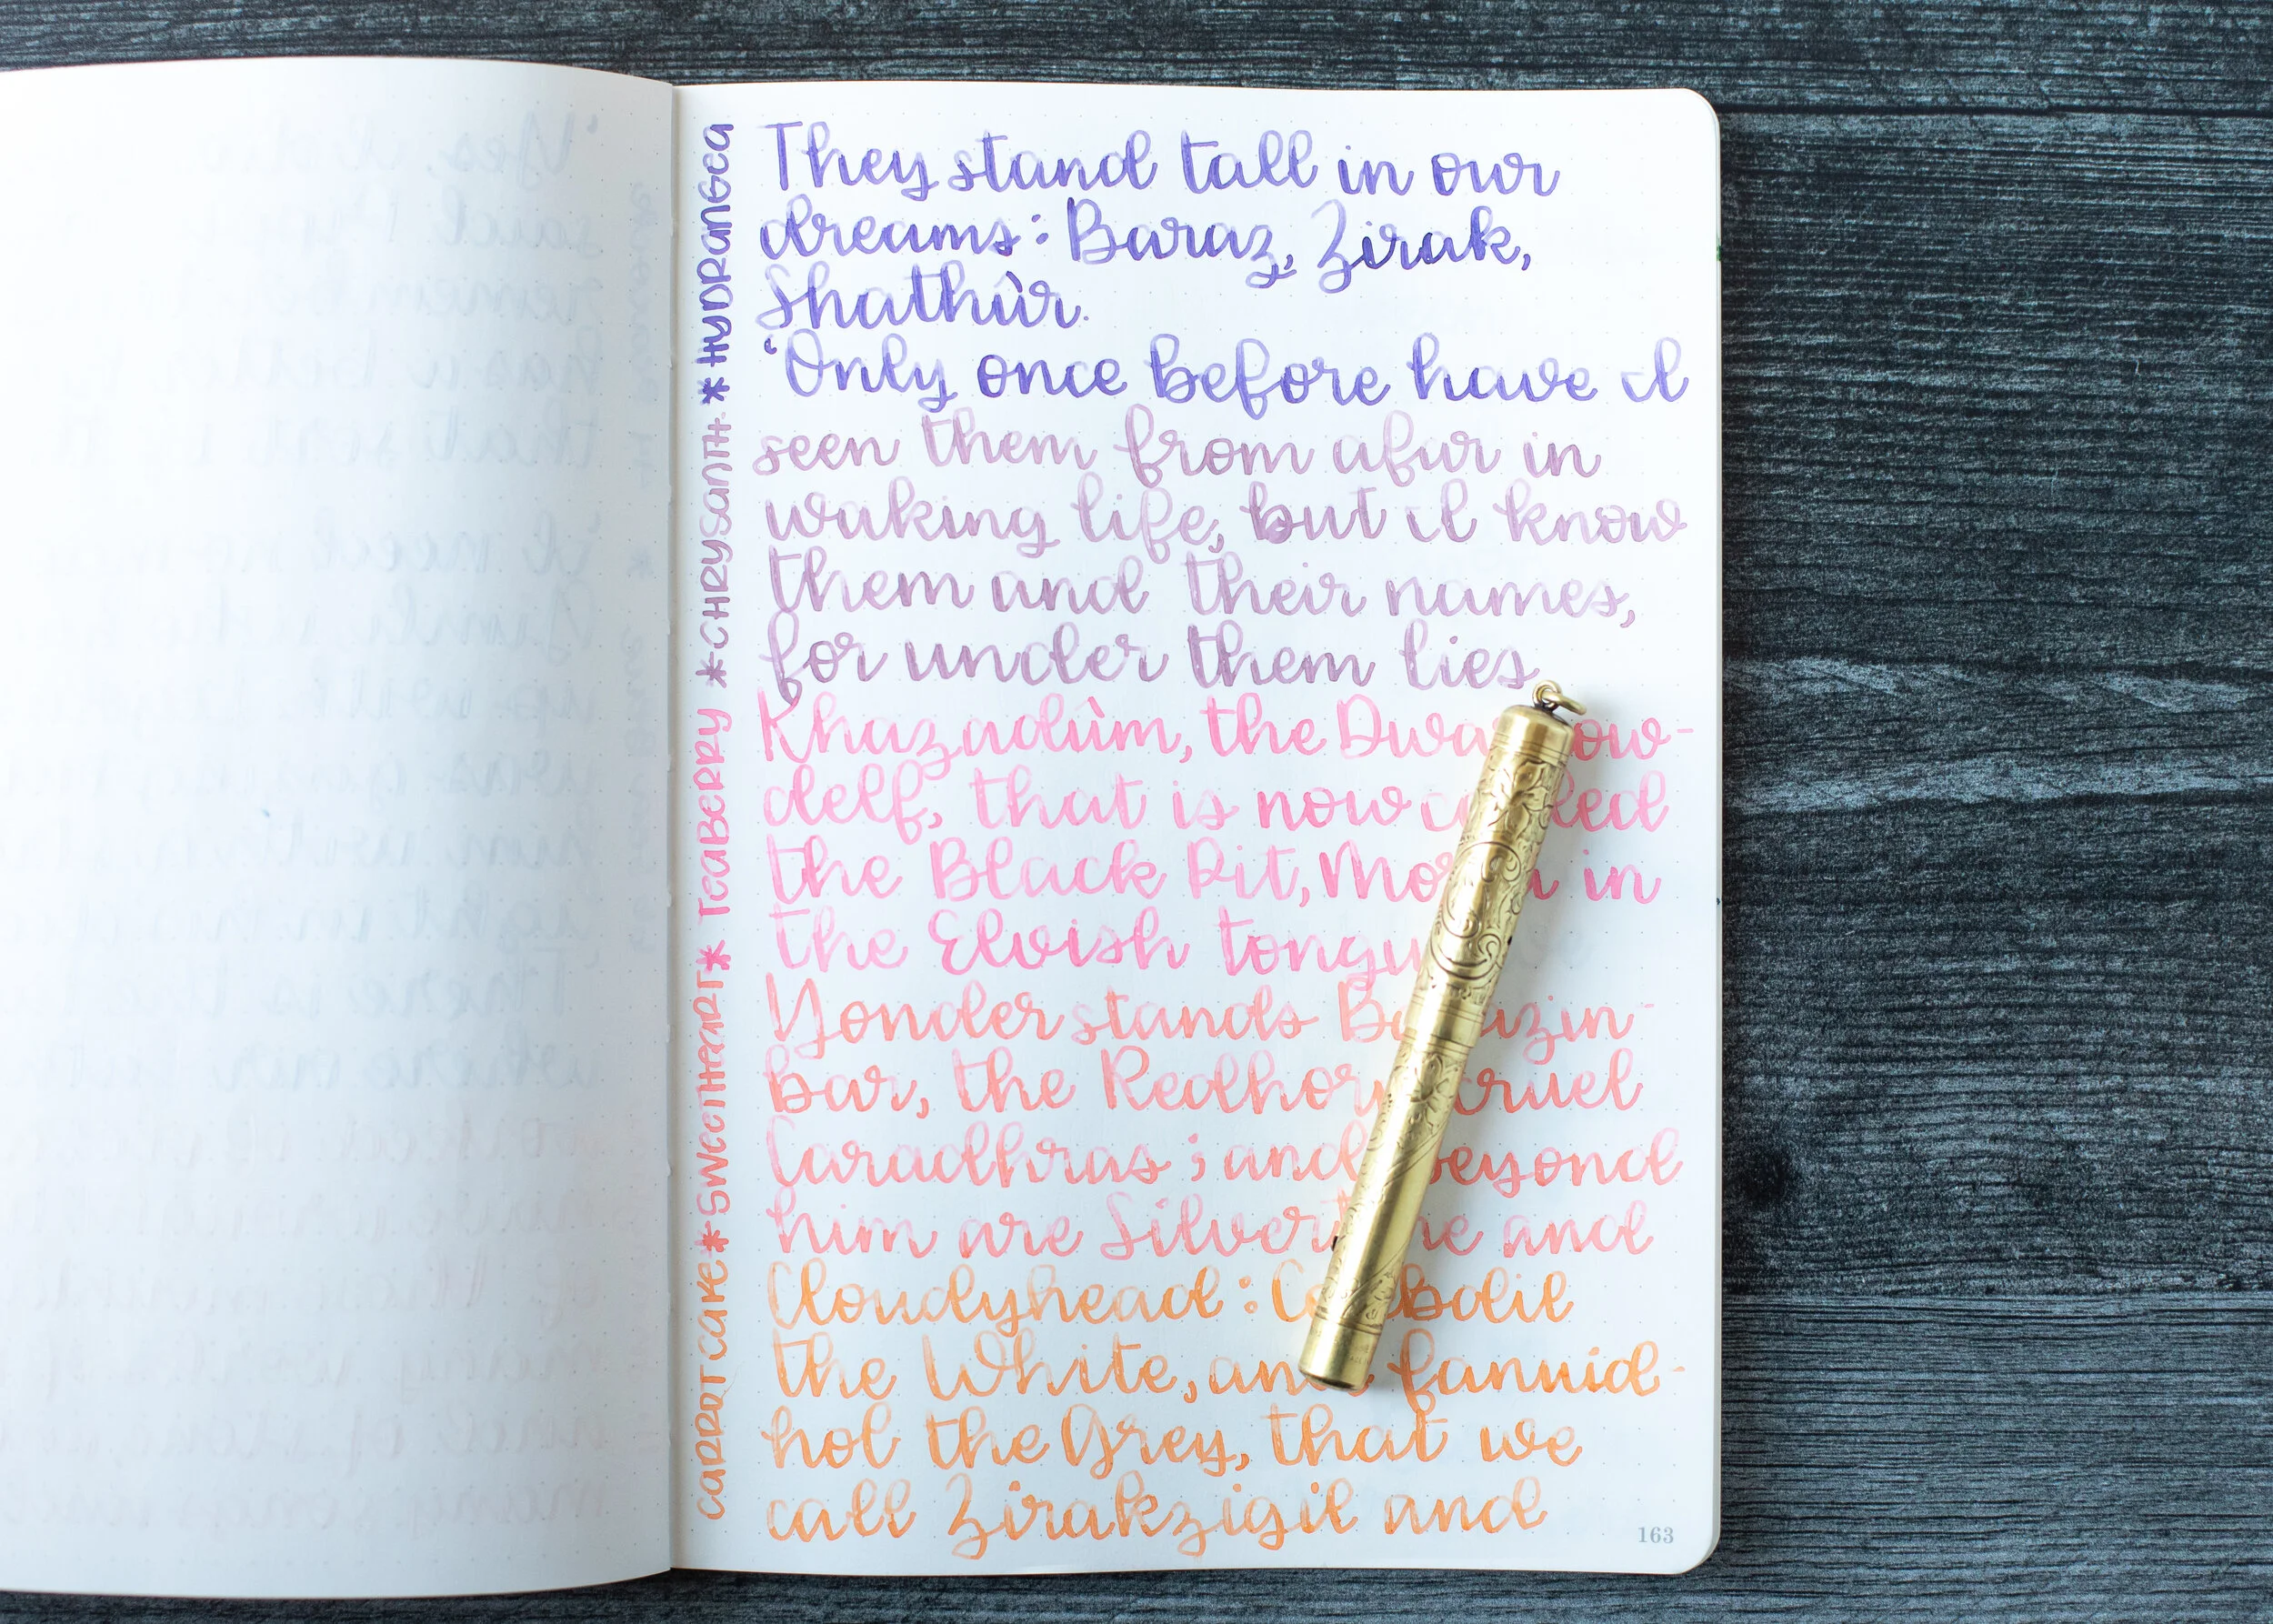 CARROT CAKE * SWEETHEART * TEABERRY * CHRYSANTH. * HYDRANGEA
They stand tall in our
dreams: Baraz, Zirak,
Shathûr.
'Only once before have I
seen them from afar in
waking life, but I know
them and their names,
for under them lies
Khazadûm, the Dwarrow-
delf, that is now called
the Black Pit, Moria in
the Elvish tongue
Yonder stands Barazin-
bar, the Redhorn, cruel
Caradhras; and beyond
him are Silvertine and
Cloudyhead: Celebdil
the White, and fanuid-
hol the Grey, that we
call Zirakzigil and
163